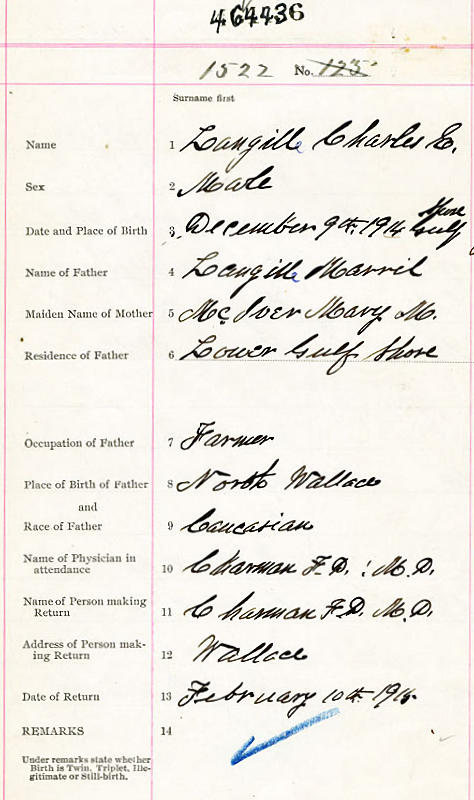 464436
1522 No. 123
Surname first
Name 1 Langille Charles E.
Sex 2 Male
Shore
Date and Place of Birth 3 December 9th 1914 Gulf
Name of Father 4 Langille Marril
Maiden Name of Mother 5 McIver Mary M.
Residence of Father 6 Lower Gulf Shore
Occupation of Father 7 Farmer
Place of Birth of Father 8 North Wallace
and
Race of Father 9 Caucasian
Name of Physician in
attendance 10 Charman F.D. : M.D.
Name of Person making
Return 11 Charman F.D. M.D.
Address of Person mak-
ing Return 12 Wallace
Date of Return 13 February 10th 1915
REMARKS 14
Under remarks state whether
Birth is Twin, Triplet, Ille-
gitimate or Still-birth.